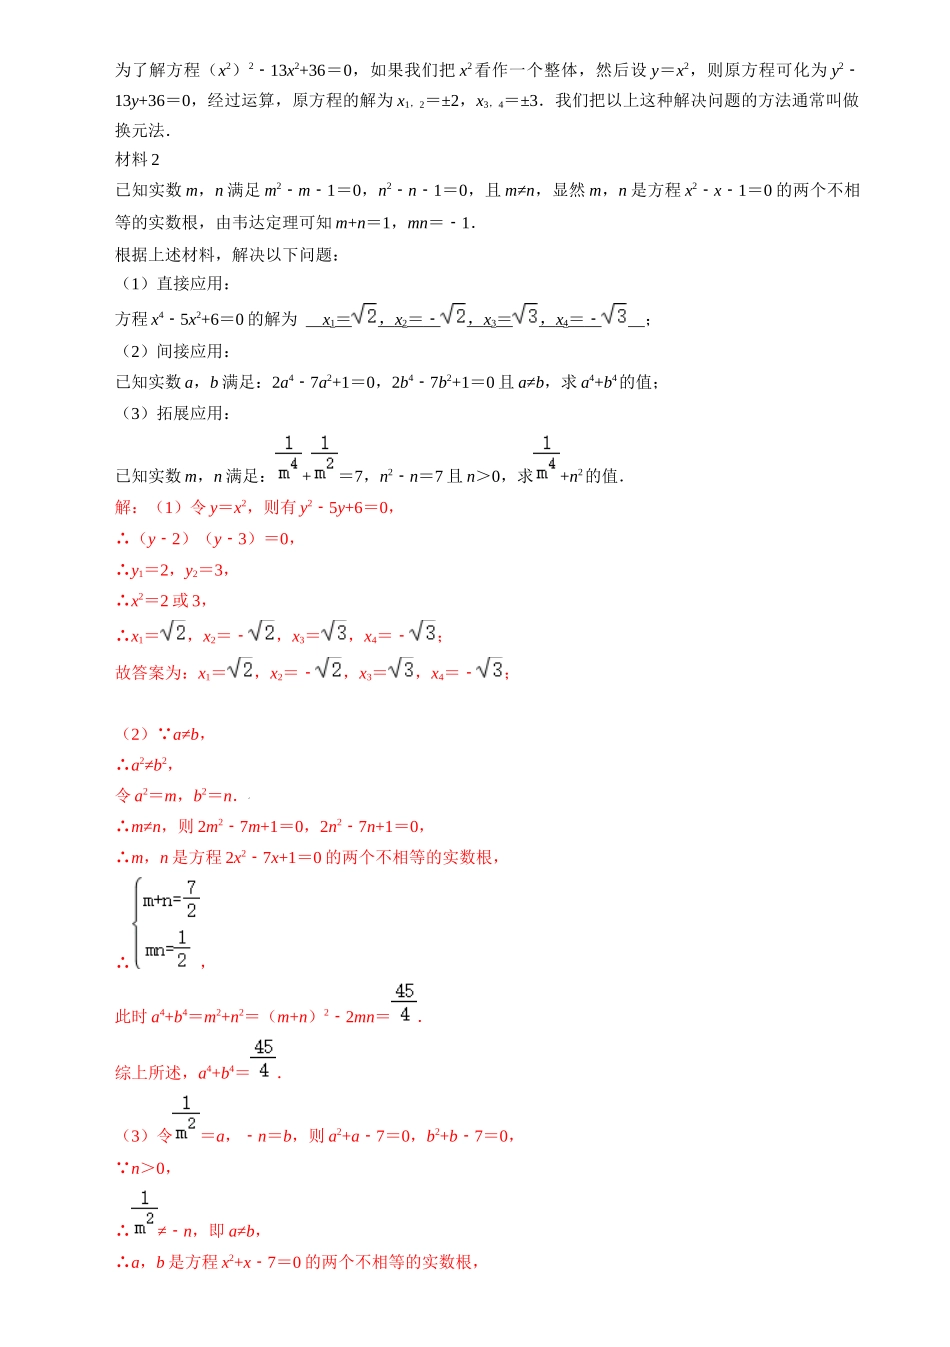 为了解方程（x²）²﹣13x²+36＝0，如果我们把 x²看作一个整体，然后设 y＝x²，则原方程可化为 y²﹣
13y+36＝0，经过运算，原方程的解为 x₁，₂＝±2，x₃，₄＝±3．我们把以上这种解决问题的方法通常叫做
换元法．
材料 2
已知实数 m，n 满足 m²﹣m﹣1＝0，n²﹣n﹣1＝0，且 m≠n，显然 m，n 是方程 x²﹣x﹣1＝0 的两个不相
等的实数根，由韦达定理可知 m+n＝1，mn＝﹣1．
根据上述材料，解决以下问题：
（1）直接应用：
方程 x⁴﹣5x²+6＝0 的解为 x₁＝√2，x₂＝﹣√2，x₃＝√3，x₄＝﹣√3 ；
（2）间接应用：
已知实数 a，b 满足：2a⁴﹣7a²+1＝0，2b⁴﹣7b²+1＝0 且 a≠b，求 a⁴+b⁴的值；
（3）拓展应用：
已知实数 m，n 满足：1/m⁴+1/m²＝7，n²﹣n＝7 且 n＞0，求1/m⁴+n²的值．
解：（1）令 y＝x²，则有 y²﹣5y+6＝0，
∴（y﹣2）（y﹣3）＝0，
∴y₁＝2，y₂＝3，
∴x²＝2 或 3，
∴x₁＝√2，x₂＝﹣√2，x₃＝√3，x₄＝﹣√3；
故答案为：x₁＝√2，x₂＝﹣√2，x₃＝√3，x₄＝﹣√3；
（2）∵a≠b，
∴a²≠b²，
令 a²＝m，b²＝n．
∴m≠n，则 2m²﹣7m+1＝0，2n²﹣7n+1＝0，
∴m，n 是方程 2x²﹣7x+1＝0 的两个不相等的实数根，
∴{m+n=7/2
mn=1/2，
此时 a⁴+b⁴＝m²+n²＝（m+n）²﹣2mn＝45/4．
综上所述，a⁴+b⁴＝45/4．
（3）令1/m²＝a，﹣n＝b，则 a²+a﹣7＝0，b²+b﹣7＝0，
∵n＞0，
∴1/m²≠﹣n，即 a≠b，
∴a，b 是方程 x²+x﹣7＝0 的两个不相等的实数根，